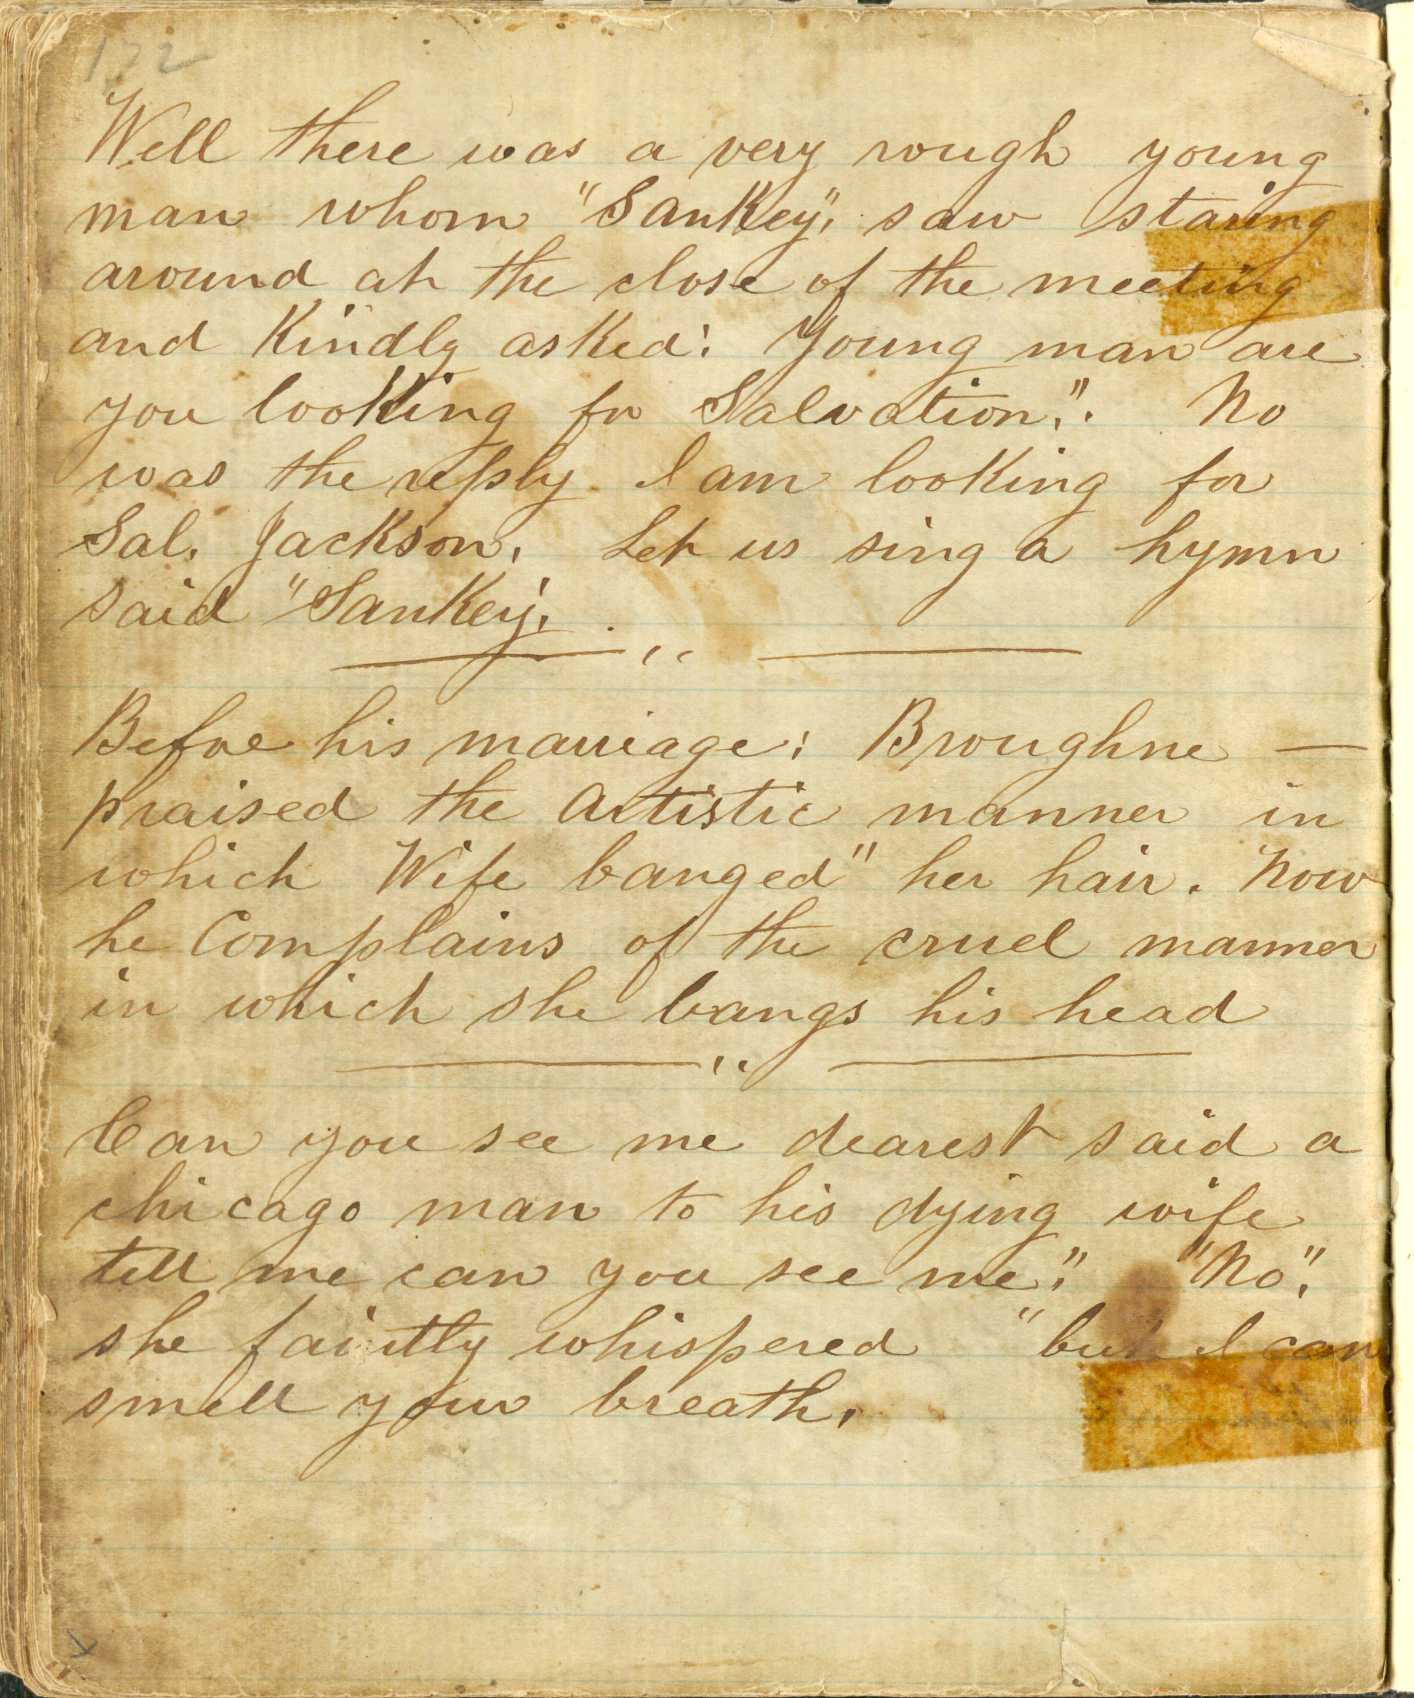 172
Well there was a very rough young
man whom "Sankey", saw staring
around at the close of the meeting
and Kindly asked: Young man are
you looking for Salvation,". No
was the reply. I am looking for
Sal. Jackson. Let us sing a hymn
said "Sankey,
Before his marriage: Broughne —
praised the Artistic manner in
which Wife banged" her hair. Now
he Complains of the cruel manner
in which she bangs his head
Can you see me dearest said a
chicago man to his dying wife
tell me can you see me". "No".
she faintly whispered "but I can
smell your breath.